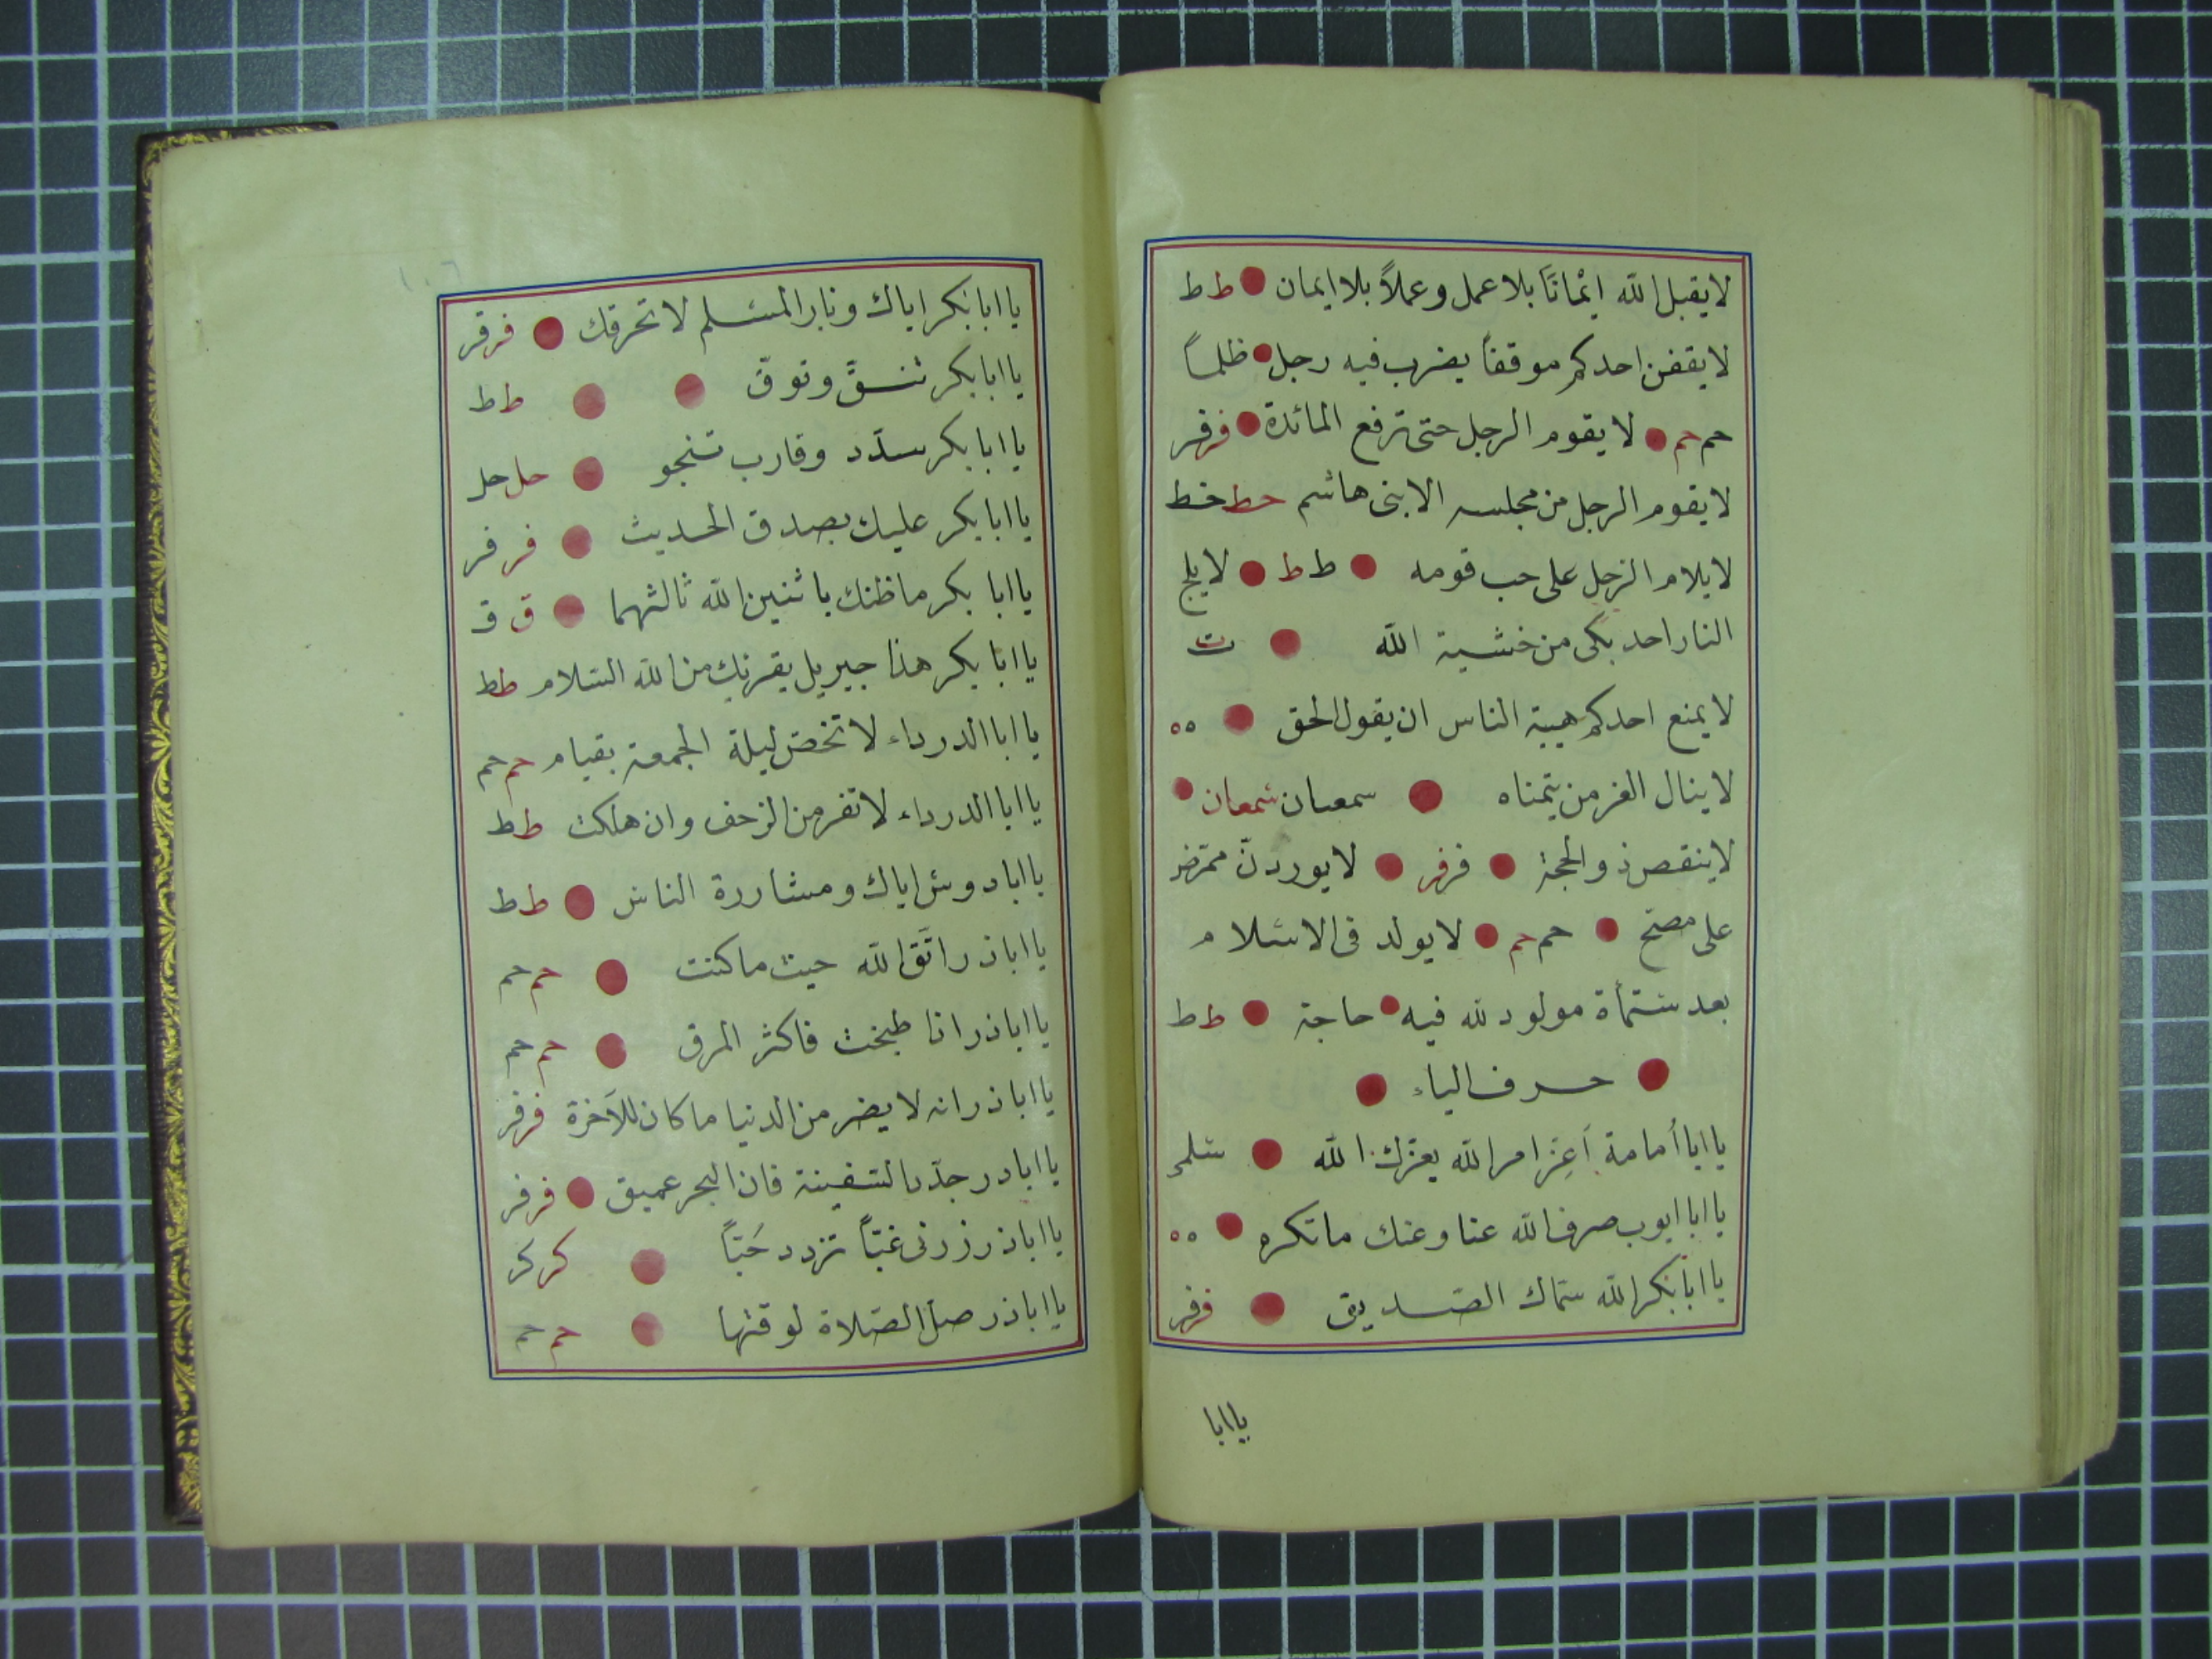 لا يقبل الله ايمانًا بلا عمل وعملاً بلا ايمان ط ط
لا يقفن احدكم موقفاً يضرب فيه رجل ظلماً
حم حم لا يقوم الرجل حتى ترفع المائدة فرفر
لا يقوم الرجل من مجلسه الا بنى هاشم خط خط
لا يلام الرجل على حب قومه ط ط لا يلج
النار احد بكى من خشية الله ت
لا يمنع احدكم هيبة الناس ان يقول الحق ه ه
لا ينال العز من يتمناه سمعان سمعان
لا ينقص ذو الحجة فرفر لا يوردنّ ممرض
على مصح حم حم لا يولد فى الاسلام
بعد ستمأة مولود لله فيه حاجة ط ط
حرف الياء
يا ابا أمامة أعِز امر الله يعزك الله سلمى
يا ابا ايوب صرف الله عنا وعنك ما تكره ه ه
يا ابا بكر الله سماك الصديق فرفر
يا ابا
١٠٦
يا ابا بكر اياك ونار المسلم لا تحرقك فرقر
يا ابا بكر تنقّ وتوقّ ط ط
يا ابا بكر سدّد وقارب تنجو حل حل
يا ابا بكر عليك بصدق الحديث فر فر
يا ابا بكر ما ظنك باثنين الله ثالثهما ق ق
يا ابا بكر هذا جبريل يقرئك من الله السلام ط ط
يا ابا الدرداء لا تخص ليلة الجمعة بقيام حم حم
يا ابا الدرداء لا تفر من الزحف وان هلكت ط ط
يا ابا دوس اياك ومشاررة الناس ط ط
يا ابا ذر اتَّق الله حيث ما كنت حم حم
يا ابا ذر اذا طبخت فاكثر المرق حم حم
يا ابا ذر انه لا يضر من الدنيا ما كان للآخرة فرفر
يا ابا در جدّد السفينة فان البحر عميق فرفر
يا ابا ذر زرنى غبّاً تزدد حُبّاً كر كر
يا ابا ذر صل الصلاة لوقتها حم حم